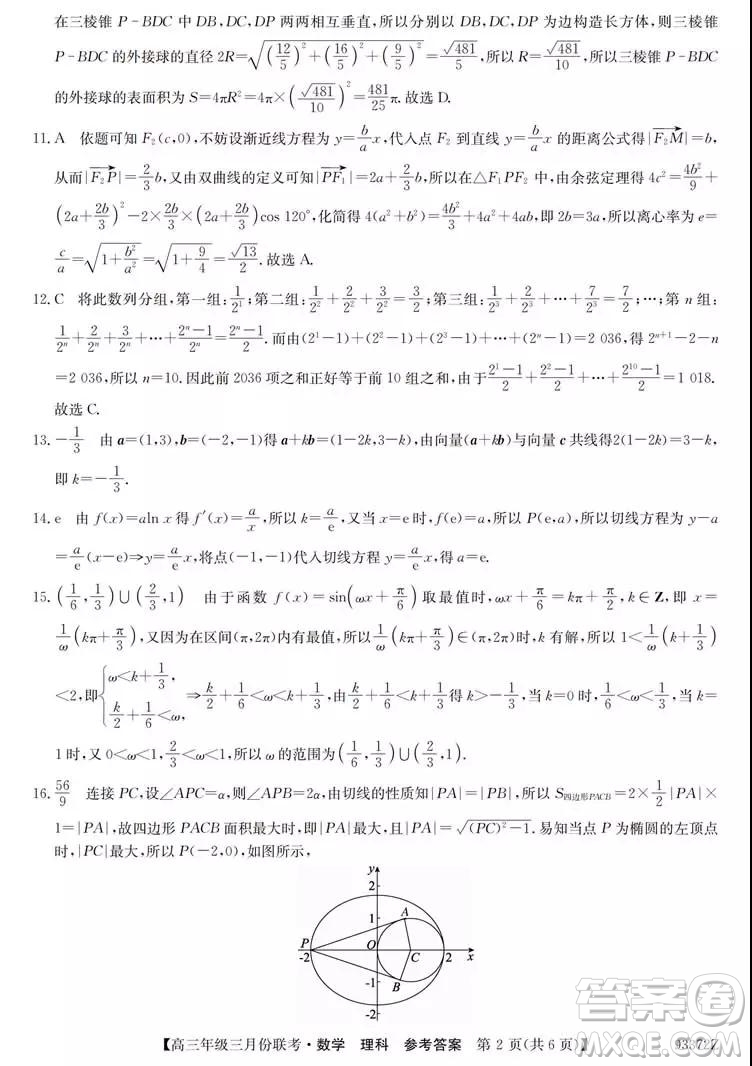 在三棱锥 P-BDC 中 DB,DC,DP 两两相互垂直,所以分别以 DB,DC,DP 为边构造长方体,则三棱锥
P-BDC 的外接球的直径 2R=√((12/5)²+(16/5)²+(9/5)²)=√481/5,所以 R=√481/10,所以三棱锥 P-BDC
的外接球的表面积为 S=4πR²=4π×(√481/10)²=481/25π.故选 D.
11.A 依题可知 F₂(c,0),不妨设渐近线方程为 y=b/a x,代入点 F₂ 到直线 y=b/a x 的距离公式得|F₂M→|=b,
从而|F₂P→|=2/3 b,又由双曲线的定义可知|PF₁→|=2a+2/3 b,所以在△F₁PF₂ 中,由余弦定理得 4c²=4b²/9+
(2a+2b/3)²-2×2b/3(2a+2b/3)cos 120°,化简得 4(a²+b²)=4b²/3+4a²+4ab,即 2b=3a,所以离心率为 e=
c/a=√(1+b²/a²)=√(1+9/4)=√13/2.故选 A.
12.C 将此数列分组,第一组:1/2¹;第二组:1/2²+2/2²+3/2²;第三组:1/2³+2/2³+…+7/2³=7/2;…;第 n 组:
1/2ⁿ+2/2ⁿ+3/2ⁿ+…+(2ⁿ-1)/2ⁿ=(2ⁿ-1)/2.而由(2¹-1)+(2²-1)+…+(2ⁿ-1)=2 036,得 2ⁿ⁺¹-2-n
=2 036,所以 n=10.因此前 2036 项之和正好等于前 10 组之和,由于(2¹-1)/2+(2²-1)/2+…+(2¹⁰-1)/2=1 018.
故选 C.
13.-1/3 由 a=(1,3),b=(-2,-1)得 a+kb=(1-2k,3-k),由向量(a+kb)与向量 c 共线得2(1-2k)=3-k,
即 k=-1/3.
14.e 由 f(x)=aln x 得 f′(x)=a/x,所以 k=a/e,又当 x=e 时,f(e)=a,所以 P(e,a),所以切线方程为 y-a
=a/e(x-e)⇒y=a/e x,将点(-1,-1)代入切线方程 y=a/e x,得 a=e.
15.(1/6,1/3)∪(2/3,1) 由于函数 f(x)=sin(ωx+π/6)取最值时,ωx+π/6=kπ+π/2,k∈Z,即 x=
1/ω(kπ+π/3),又因为在区间(π,2π)内有最值,所以1/ω(kπ+π/3)∈(π,2π)时,k 有解,所以 1<1/ω(k+1/3)
<2,即{ω<k+1/3, k/2+1/6<ω,⇒k/2+1/6<ω<k+1/3,由k/2+1/6<k+1/3得 k>-1/3,当 k=0时,1/6<ω<1/3,当 k=
1时,又 0<ω<1,2/3<ω<1,所以 ω 的范围为(1/6,1/3)∪(2/3,1).
16.56/9 连接 PC,设∠APC=α,则∠APB=2α,由切线的性质知|PA|=|PB|,所以 S四边形PACB=2×1/2|PA|×
1=|PA|,故四边形 PACB 面积最大时,即|PA|最大,且|PA|=√((PC)²-1).易知当点 P 为椭圆的左顶点
时,|PC|最大,所以 P(-2,0),如图所示,
y
2
1
A
P
O
C
-2
2
x
-1
B
-2
【高三年级三月份联考·数学 理科 参考答案 第 2 页(共 6 页)】
93372Z
高考试卷